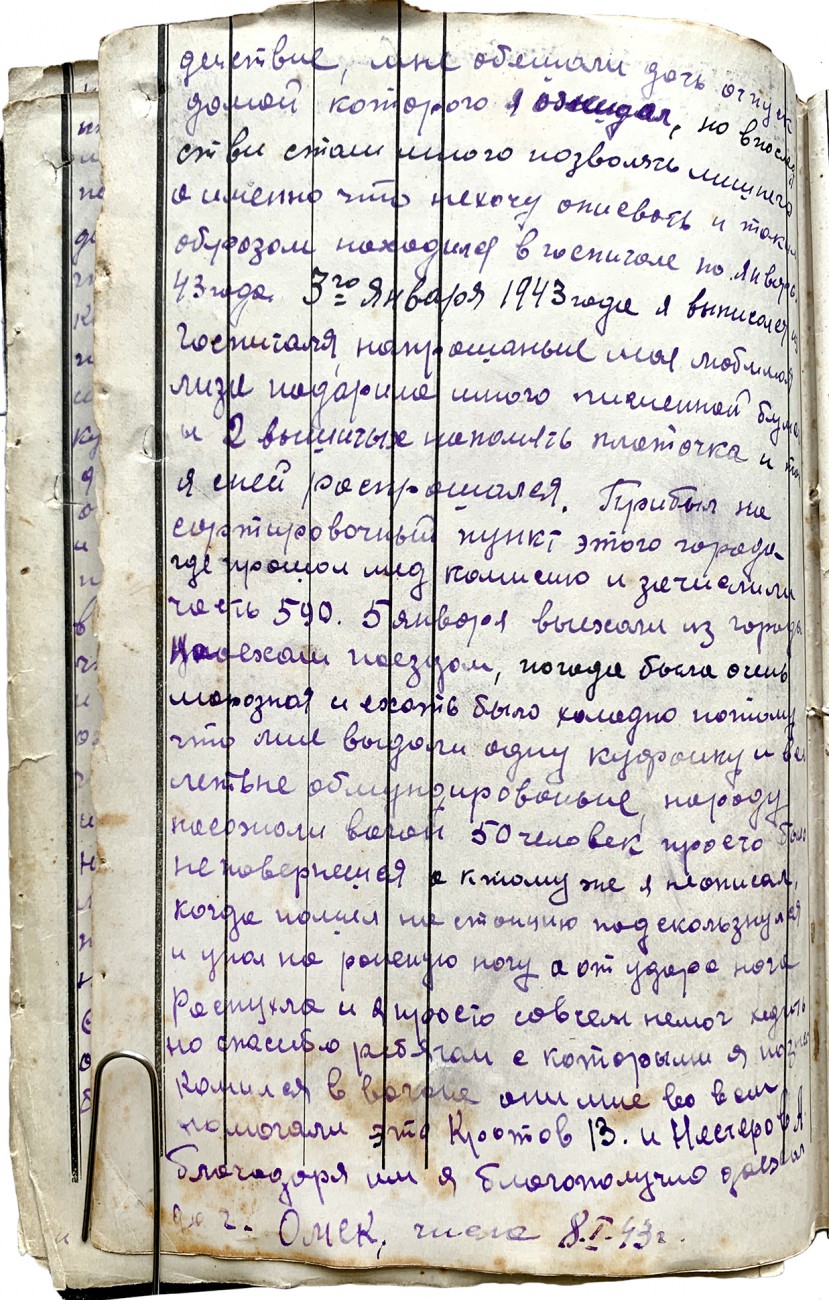 действие, мне обещали дать отпуск
домой которого я ожидал, но впослед
стви стали много позволять лишнего
а именно что нехочу описевать и таким
образом находился в госпитале по январь
43 года. 3го января 1943 года я выписался из
госпиталя, напрощанье моя любимая
лизе подарила много писменной бумаги
и 2 вышитых напомять платочка и
я сней распрощался. Прибыл на
сортировочный пункт этого города
где прошол мед комисию и зачислили
часть 590. 5 января выехали из города
поехали поездом, погода была очень
морозная и ехать было холодно потому
что мне выдали одну куфайку и
летьне обмундированье, народу
насожали вагон 50 человек просто было
неповернешся а ктому же я неописал,
когда пошел на станцию подскользнулся
и упал на раненую ногу а от удара нога
распухла и я просто совсем немог ходить
но спасибо ребятам с которыми я позна
комился в вагоне они мне во всем
помогали это Кротов В. и Нестеров А
благодаря им я благополучно доехал
до г. Омск, числа 8.I.43г.